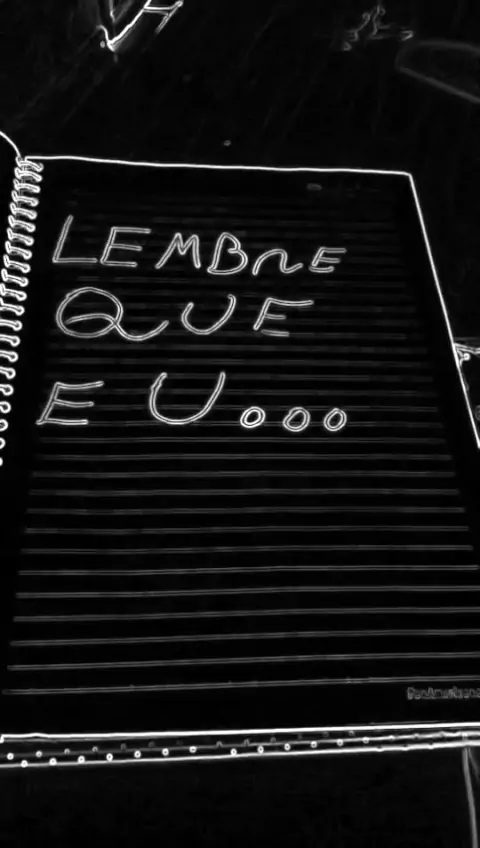 LEMBrE
QUE
EU...